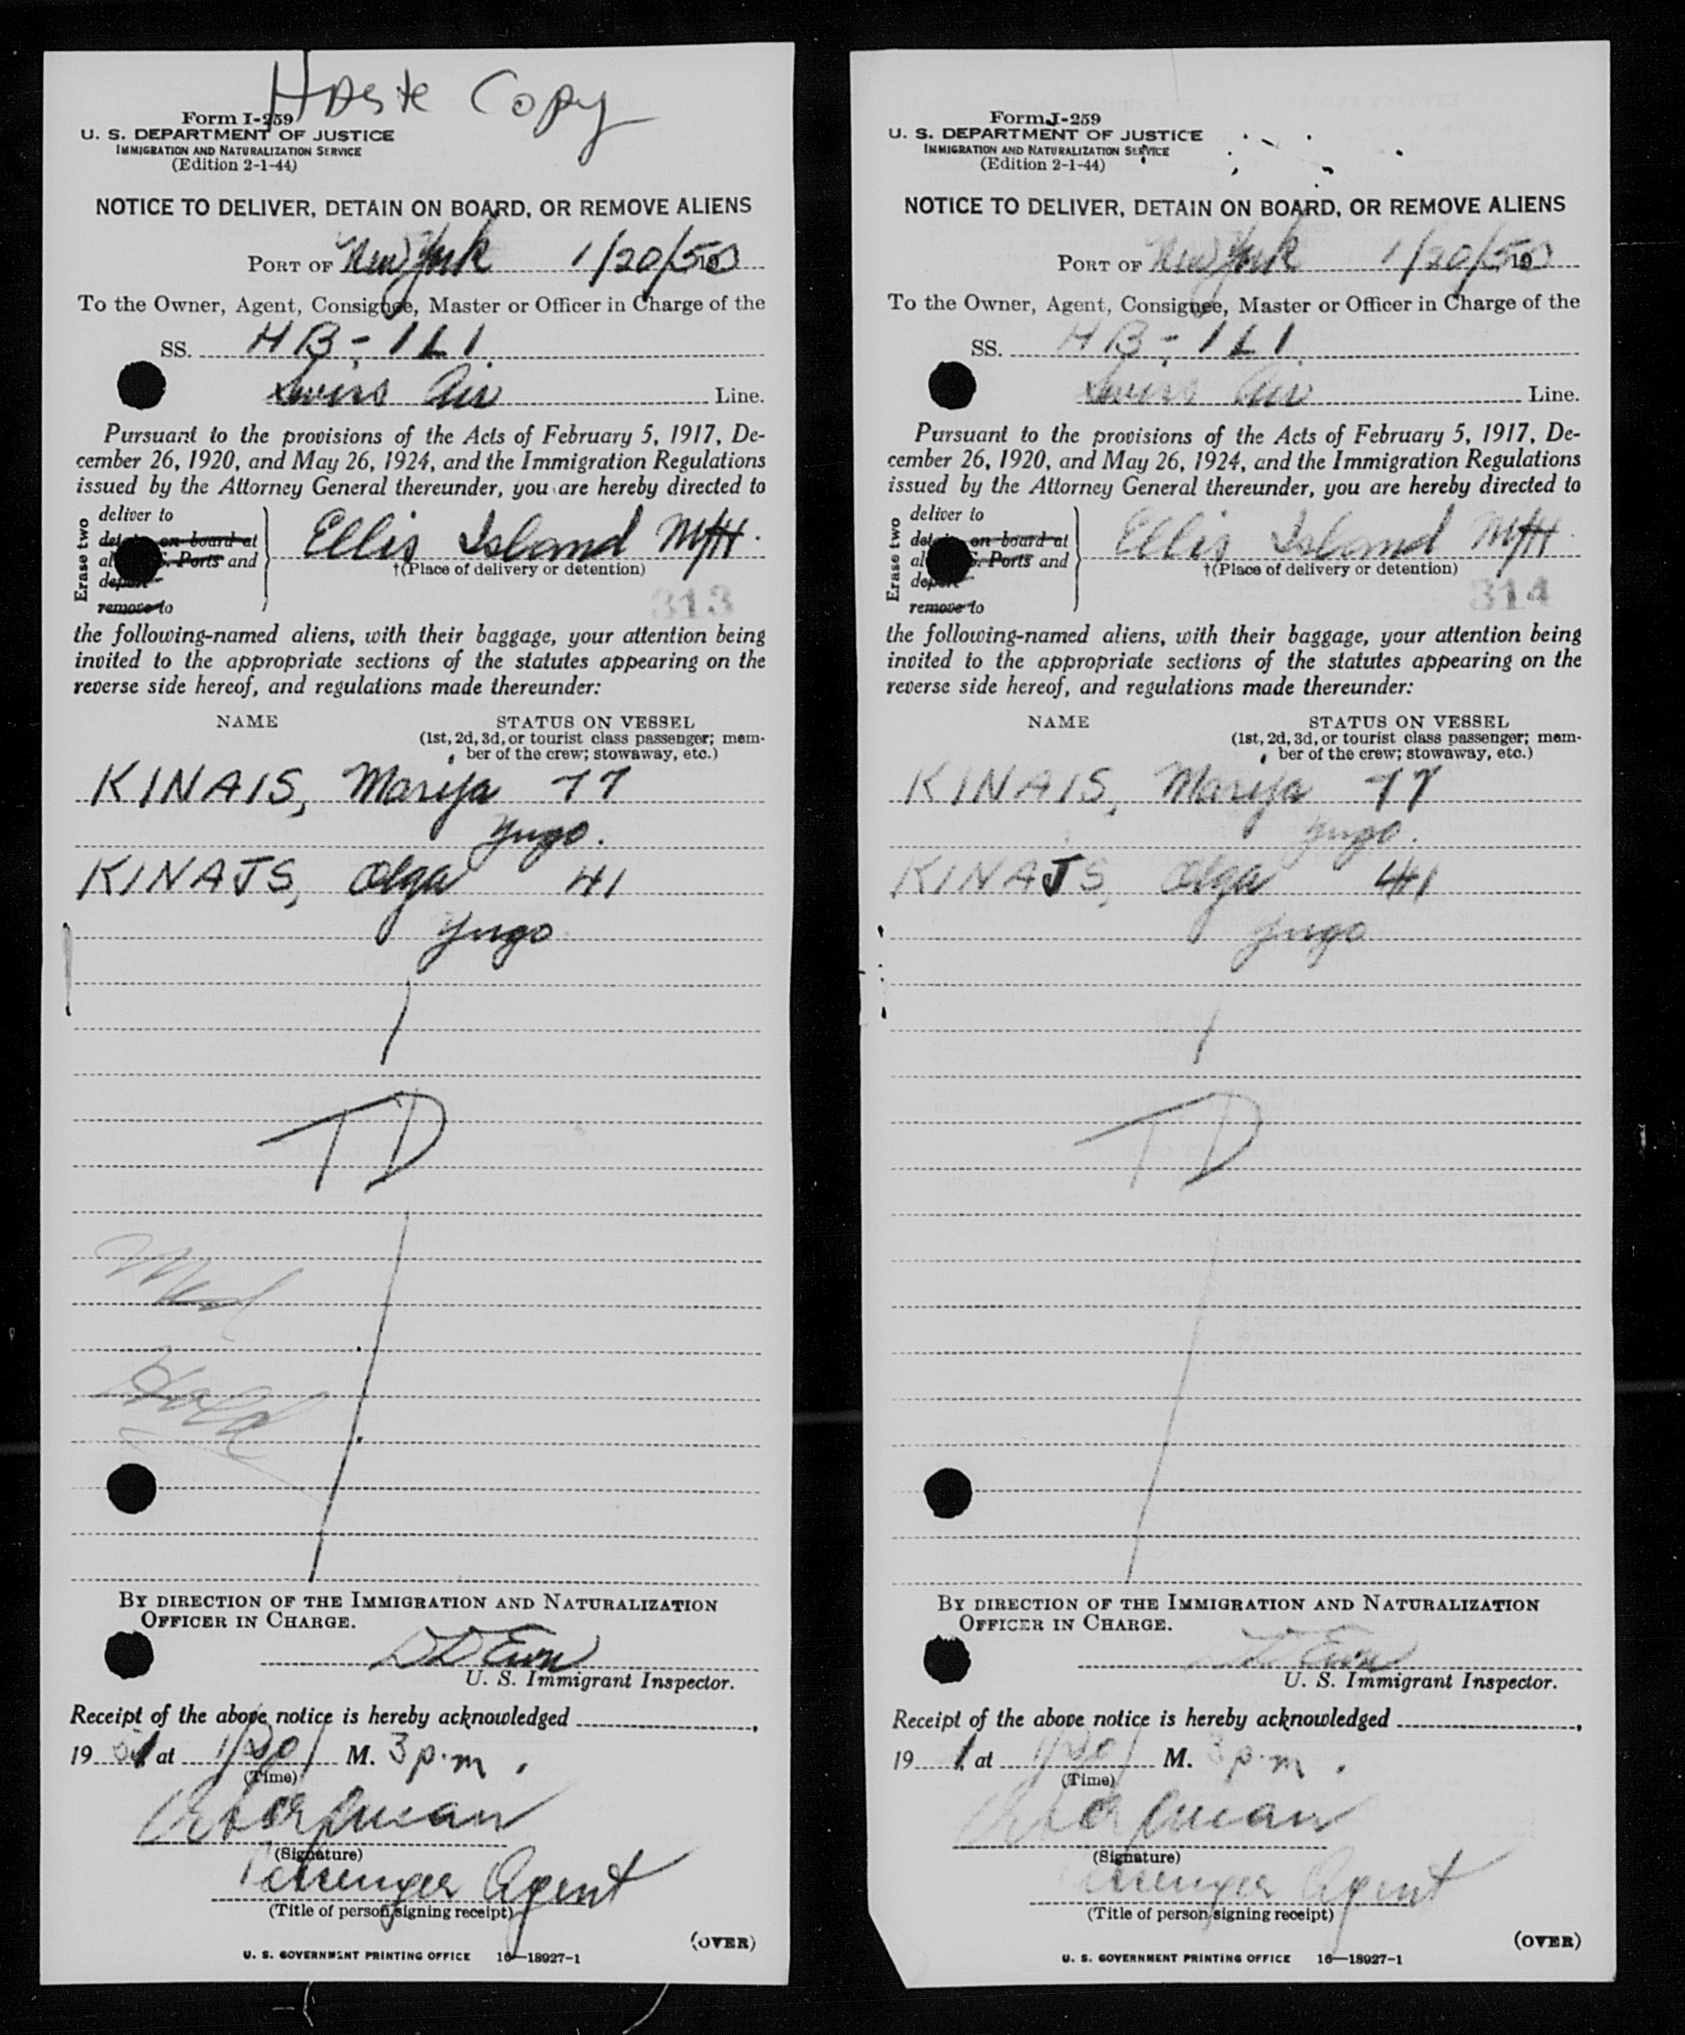 Haste Copy
Form I-259
U. S. DEPARTMENT OF JUSTICE
IMMIGRATION AND NATURALIZATION SERVICE
(Edition 2-1-44)
NOTICE TO DELIVER, DETAIN ON BOARD, OR REMOVE ALIENS
PORT OF New York 1/20/50 19
To the Owner, Agent, Consignee, Master or Officer in Charge of the
SS. HB-ILI
Swiss Air Line.
Pursuant to the provisions of the Acts of February 5, 1917, De-
cember 26, 1920, and May 26, 1924, and the Immigration Regulations
issued by the Attorney General thereunder, you are hereby directed to
Erase two
deliver to
on board at
Ports and
remove to
Ellis Island M/H.
†(Place of delivery or detention)
313
the following-named aliens, with their baggage, your attention being
invited to the appropriate sections of the statutes appearing on the
reverse side hereof, and regulations made thereunder:
NAME STATUS ON VESSEL
(1st, 2d, 3d, or tourist class passenger; mem-
ber of the crew; stowaway, etc.)
KINAIS, Marija 77
Yugo.
KINAJS, Olga 41
Yugo
TD
Med
Hold
BY DIRECTION OF THE IMMIGRATION AND NATURALIZATION
OFFICER IN CHARGE.
U. S. Immigrant Inspector.
Receipt of the above notice is hereby acknowledged
19 at 1/20/ M. 3 p.m.
(Time)
(Signature)
Passenger Agent
(Title of person signing receipt)
(OVER)
U. S. GOVERNMENT PRINTING OFFICE 16—18927-1
Form I-259
U. S. DEPARTMENT OF JUSTICE
IMMIGRATION AND NATURALIZATION SERVICE
(Edition 2-1-44)
NOTICE TO DELIVER, DETAIN ON BOARD, OR REMOVE ALIENS
PORT OF New York 1/20/50 19
To the Owner, Agent, Consignee, Master or Officer in Charge of the
SS. HB-ILI
Swiss Air Line.
Pursuant to the provisions of the Acts of February 5, 1917, De-
cember 26, 1920, and May 26, 1924, and the Immigration Regulations
issued by the Attorney General thereunder, you are hereby directed to
Erase two
deliver to
on board at
Ports and
remove to
Ellis Island M/H
†(Place of delivery or detention)
314
the following-named aliens, with their baggage, your attention being
invited to the appropriate sections of the statutes appearing on the
reverse side hereof, and regulations made thereunder:
NAME STATUS ON VESSEL
(1st, 2d, 3d, or tourist class passenger; mem-
ber of the crew; stowaway, etc.)
KINAIS, Marija 77
Yugo.
KINAJS, Olga 41
Yugo
TD
BY DIRECTION OF THE IMMIGRATION AND NATURALIZATION
OFFICER IN CHARGE.
U. S. Immigrant Inspector.
Receipt of the above notice is hereby acknowledged
19 at 1/20/ M. 3 p.m.
(Time)
(Signature)
Passenger Agent
(Title of person signing receipt)
(OVER)
U. S. GOVERNMENT PRINTING OFFICE 16—18927-1